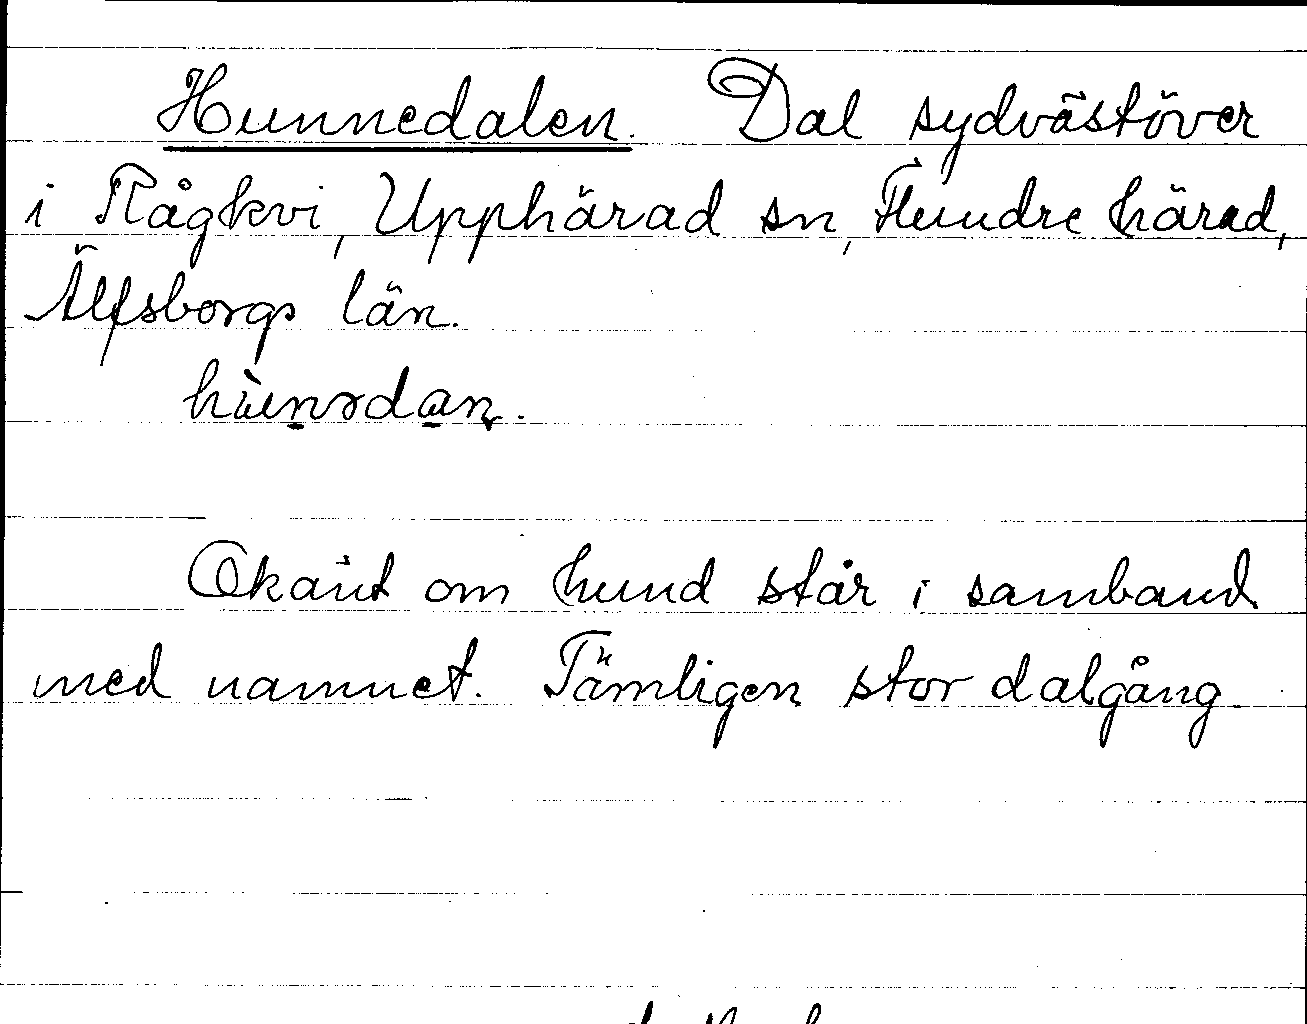 Hunnedalen. Dal sydvästöver
i Rågkvi, Upphärad sn, Flundre härad,
Älfsborgs län.
hùnɘdan.
Okänt om hund står i samband
med namnet. Tämligen stor dalgång.